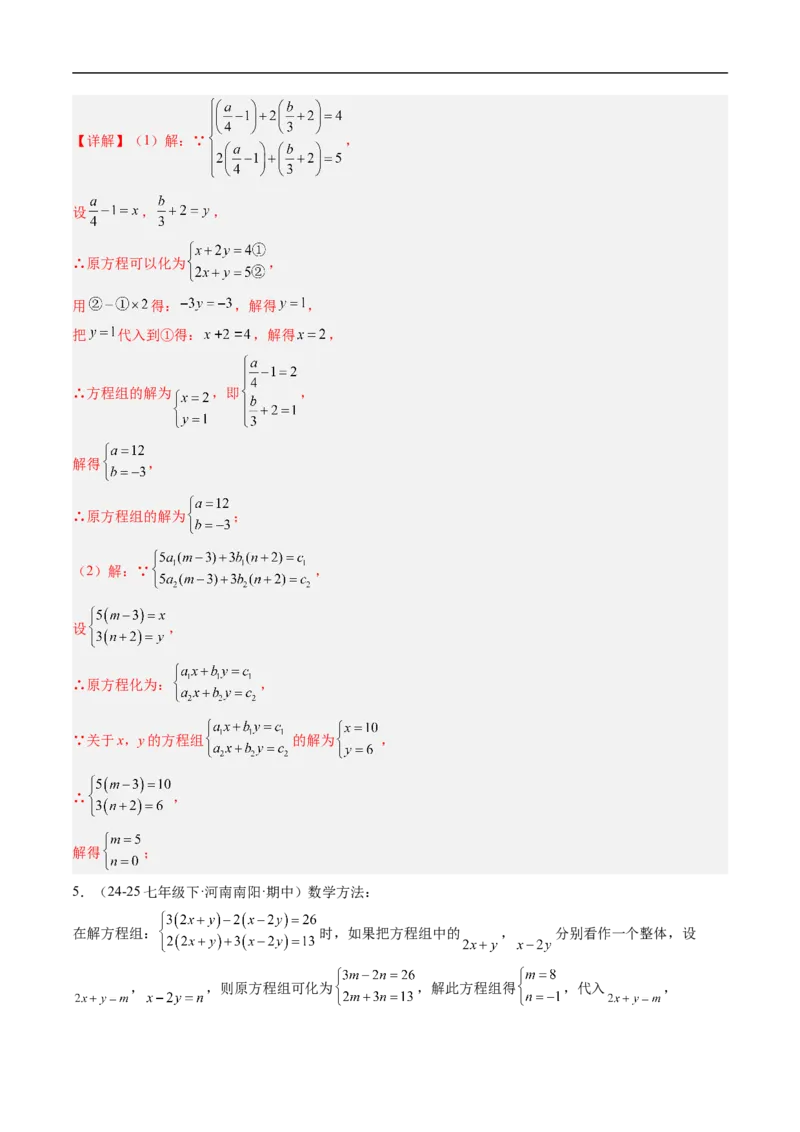 【详解】（1）解：∵ {(a/4 −1)+2(b/3 +2)=4
2(a/4 −1)+(b/3 +2)=5 ，
设 a/4 −1= x ， b/3 +2 = y ，
∴原方程可以化为 {x+2y=4①
2x+y=5② ，
用②−①×2 得：−3y = −3 ，解得 y =1 ，
把 y =1 代入到①得： x +2 =4 ，解得 x = 2 ，
∴方程组的解为 {x = 2
y =1 ，即 {a/4 −1= 2
b/3 +2=1 ，
解得 {a =12
b = −3 ，
∴原方程组的解为 {a =12
b = −3 ；
（2）解：∵ {5a₁(m−3)+3b₁(n+2)=c₁
5a₂(m−3)+3b₂(n+2)=c₂ ，
设 {5(m−3)= x
3(n+2)= y ，
∴原方程化为： {a₁x+b₁y=c₁
a₂x+b₂y=c₂ ，
∵关于 x，y 的方程组 {a₁x+b₁y=c₁
a₂x+b₂y=c₂ 的解为 {x =10
y = 6 ，
∴ {5(m−3)=10
3(n+2)=6 ，
解得 {m = 5
n = 0 ；
5．（24-25 七年级下·河南南阳·期中）数学方法：
在解方程组： {3(2x+y)−2(x−2y)=26
2(2x+y)+3(x−2y)=13 时，如果把方程组中的 2x+y ， x−2y 分别看作一个整体，设
2x+y−m ， x−2y=n ，则原方程组可化为 {3m−2n=26
2m+3n=13 ，解此方程组得 {m = 8
n = −1 ，代入 2x+y−m ，